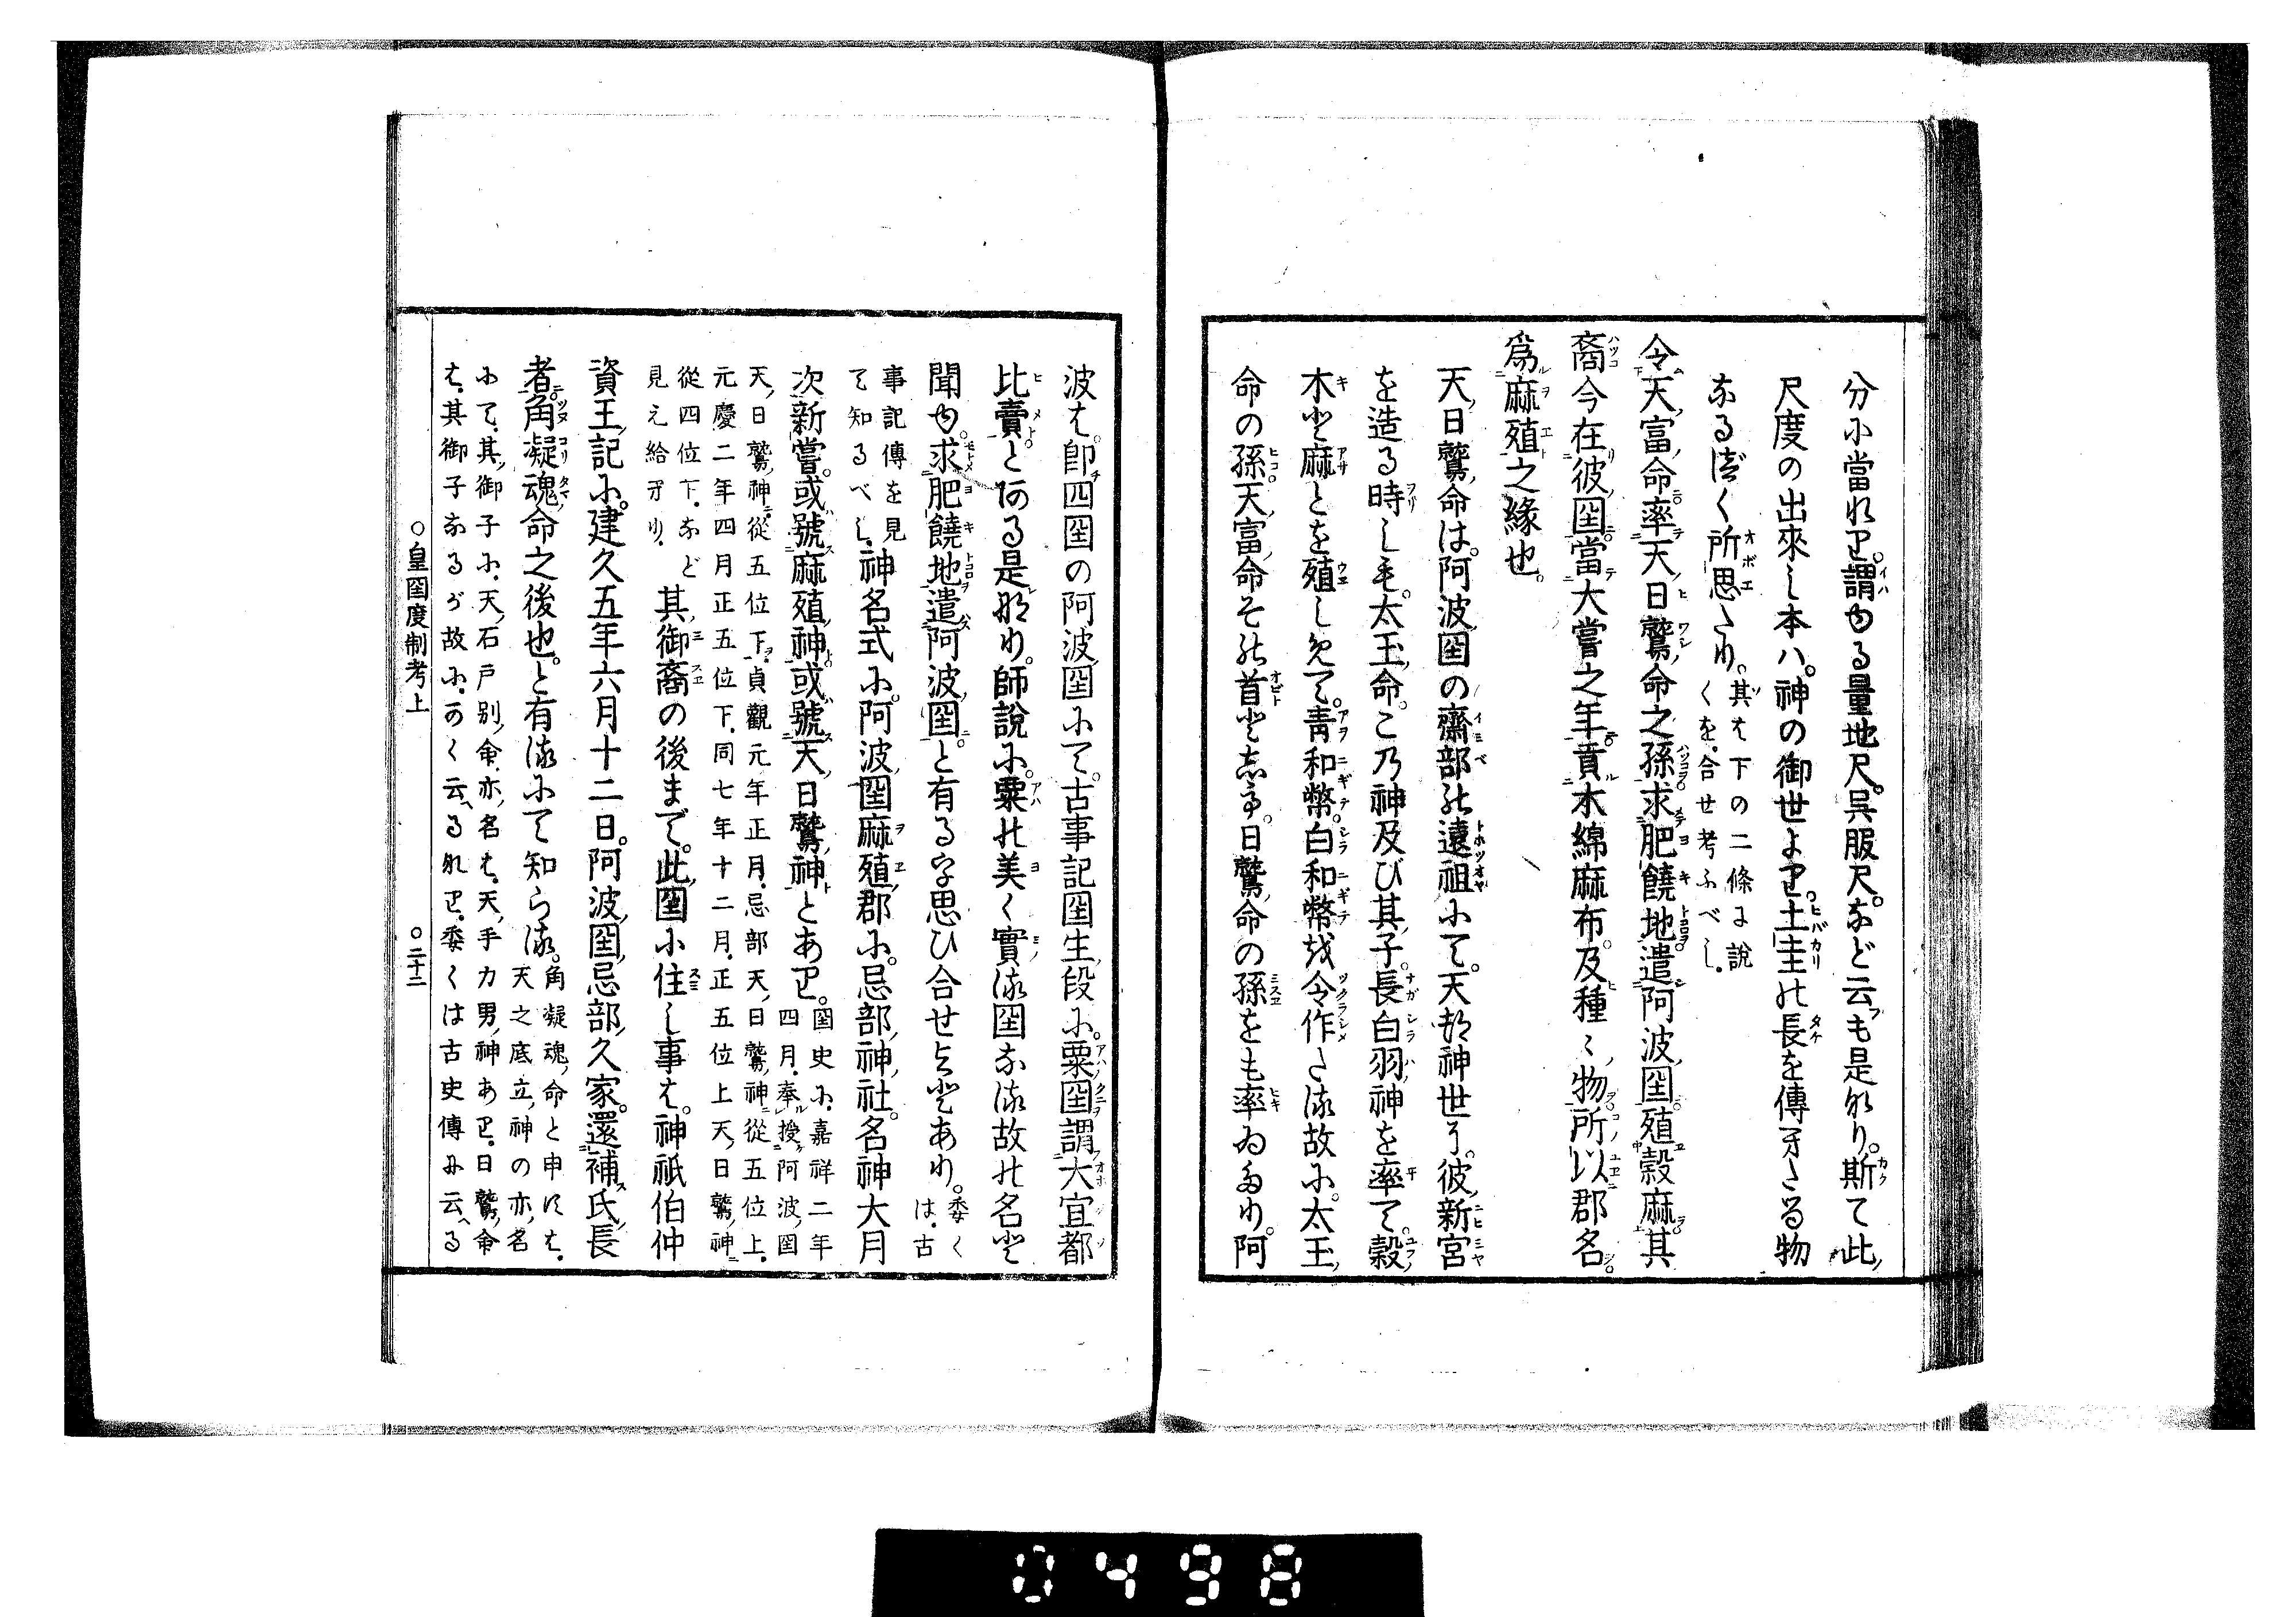 分小當れり。謂ゆる量地尺。呉服尺。など云も是なり。斯て此
尺度の出來し本ハ。神の御世より。土圭の長を傳まつる物
なるべく所思たり。其は下の二條に説
くを。合せ考ふべし。
令天富命率天日鷲命之孫求肥饒地遣阿波圀殖穀麻其
裔今在彼圀當大嘗之年貢木綿麻布及種〻物所以郡名
爲麻殖之縁也。
天日鷲命は。阿波圀の齋部の遠祖にて。天都神世に。彼新宮
を造る時しも。太玉命。こ乃神及び其子。長白羽神を率て。穀
木と麻とを殖しめて。靑和幣。白和幣を令作たる故に。太玉
命の孫天富命その首として。日鷲命の孫をも率ゐたり。阿
波は。卽四圀の阿波圀にて。古事記圀生段に。粟圀謂大宜都
比賣とある是なり。師説に。粟の美く實る圀なる故の名と
聞ゆ。求肥饒地遣阿波圀。と有る字思ひ合せよとあり。委く
は。古
事記傳を見
て知るべし。神名式に。阿波圀麻殖郡に。忌部神社。名神大月
次新嘗。或號麻殖神。或號天日鷲神とあり。圀史に。嘉祥二年
四月。奉授阿波圀
天日鷲神從五位下。貞觀元年正月。忌部天日鷲神從五位上。
元慶二年四月正五位下。同七年十二月。正五位上天日鷲神
從四位下。など
見え給まり。其御裔の後まで。此圀小住し事は。神祇伯仲
資王記に。建久五年六月十二日。阿波圀忌部久家。還補氏長
者。角凝魂命之後也。と有るにて知らる。角凝魂命と申すは。
天之底立神の亦名
にて。其御子に。天石戸別命。亦名は。天手力男神あり。日鷲命
は。其御子なるが故に。かく云へるなり。委くは古史傳に云へる
○皇圀度制考上
○二十二
0498